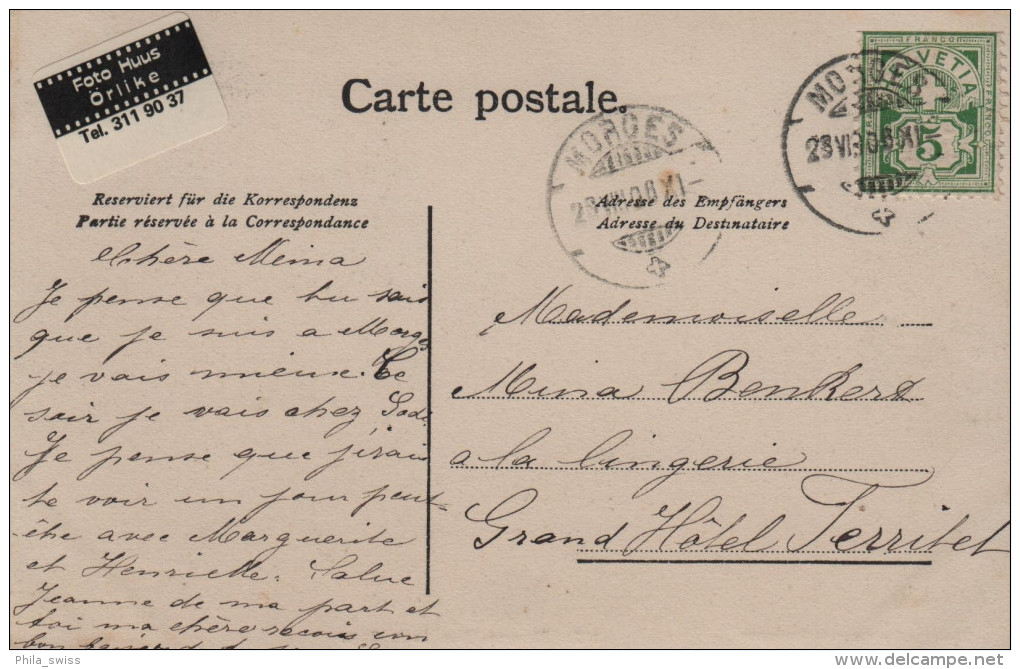 Foto Huus
Örlike
Tel. 311 90 37
Carte postale.
FRANCO
HELVETIA
FRANCO
5
MORGES
23 VII 06 XI–
MORGES
23 VII 06 XI–
Reserviert für die Korrespondenz
Partie réservée à la Correspondance
Adresse des Empfängers
Adresse du Destinataire
Chère Mina
Je pense que tu sais
que je suis a Morges
je vais mieux. Ce
soir je vais chez
Je pense que j'irai
te voir un jour peut-
être avec Marguerite
et Henriette. Salue
Jeanne de ma part et
toi ma chère recois un
bon
Mademoiselle
Mina Benkert
a la lingerie
Grand Hôtel Territet
Phila_swiss
delcampe.net